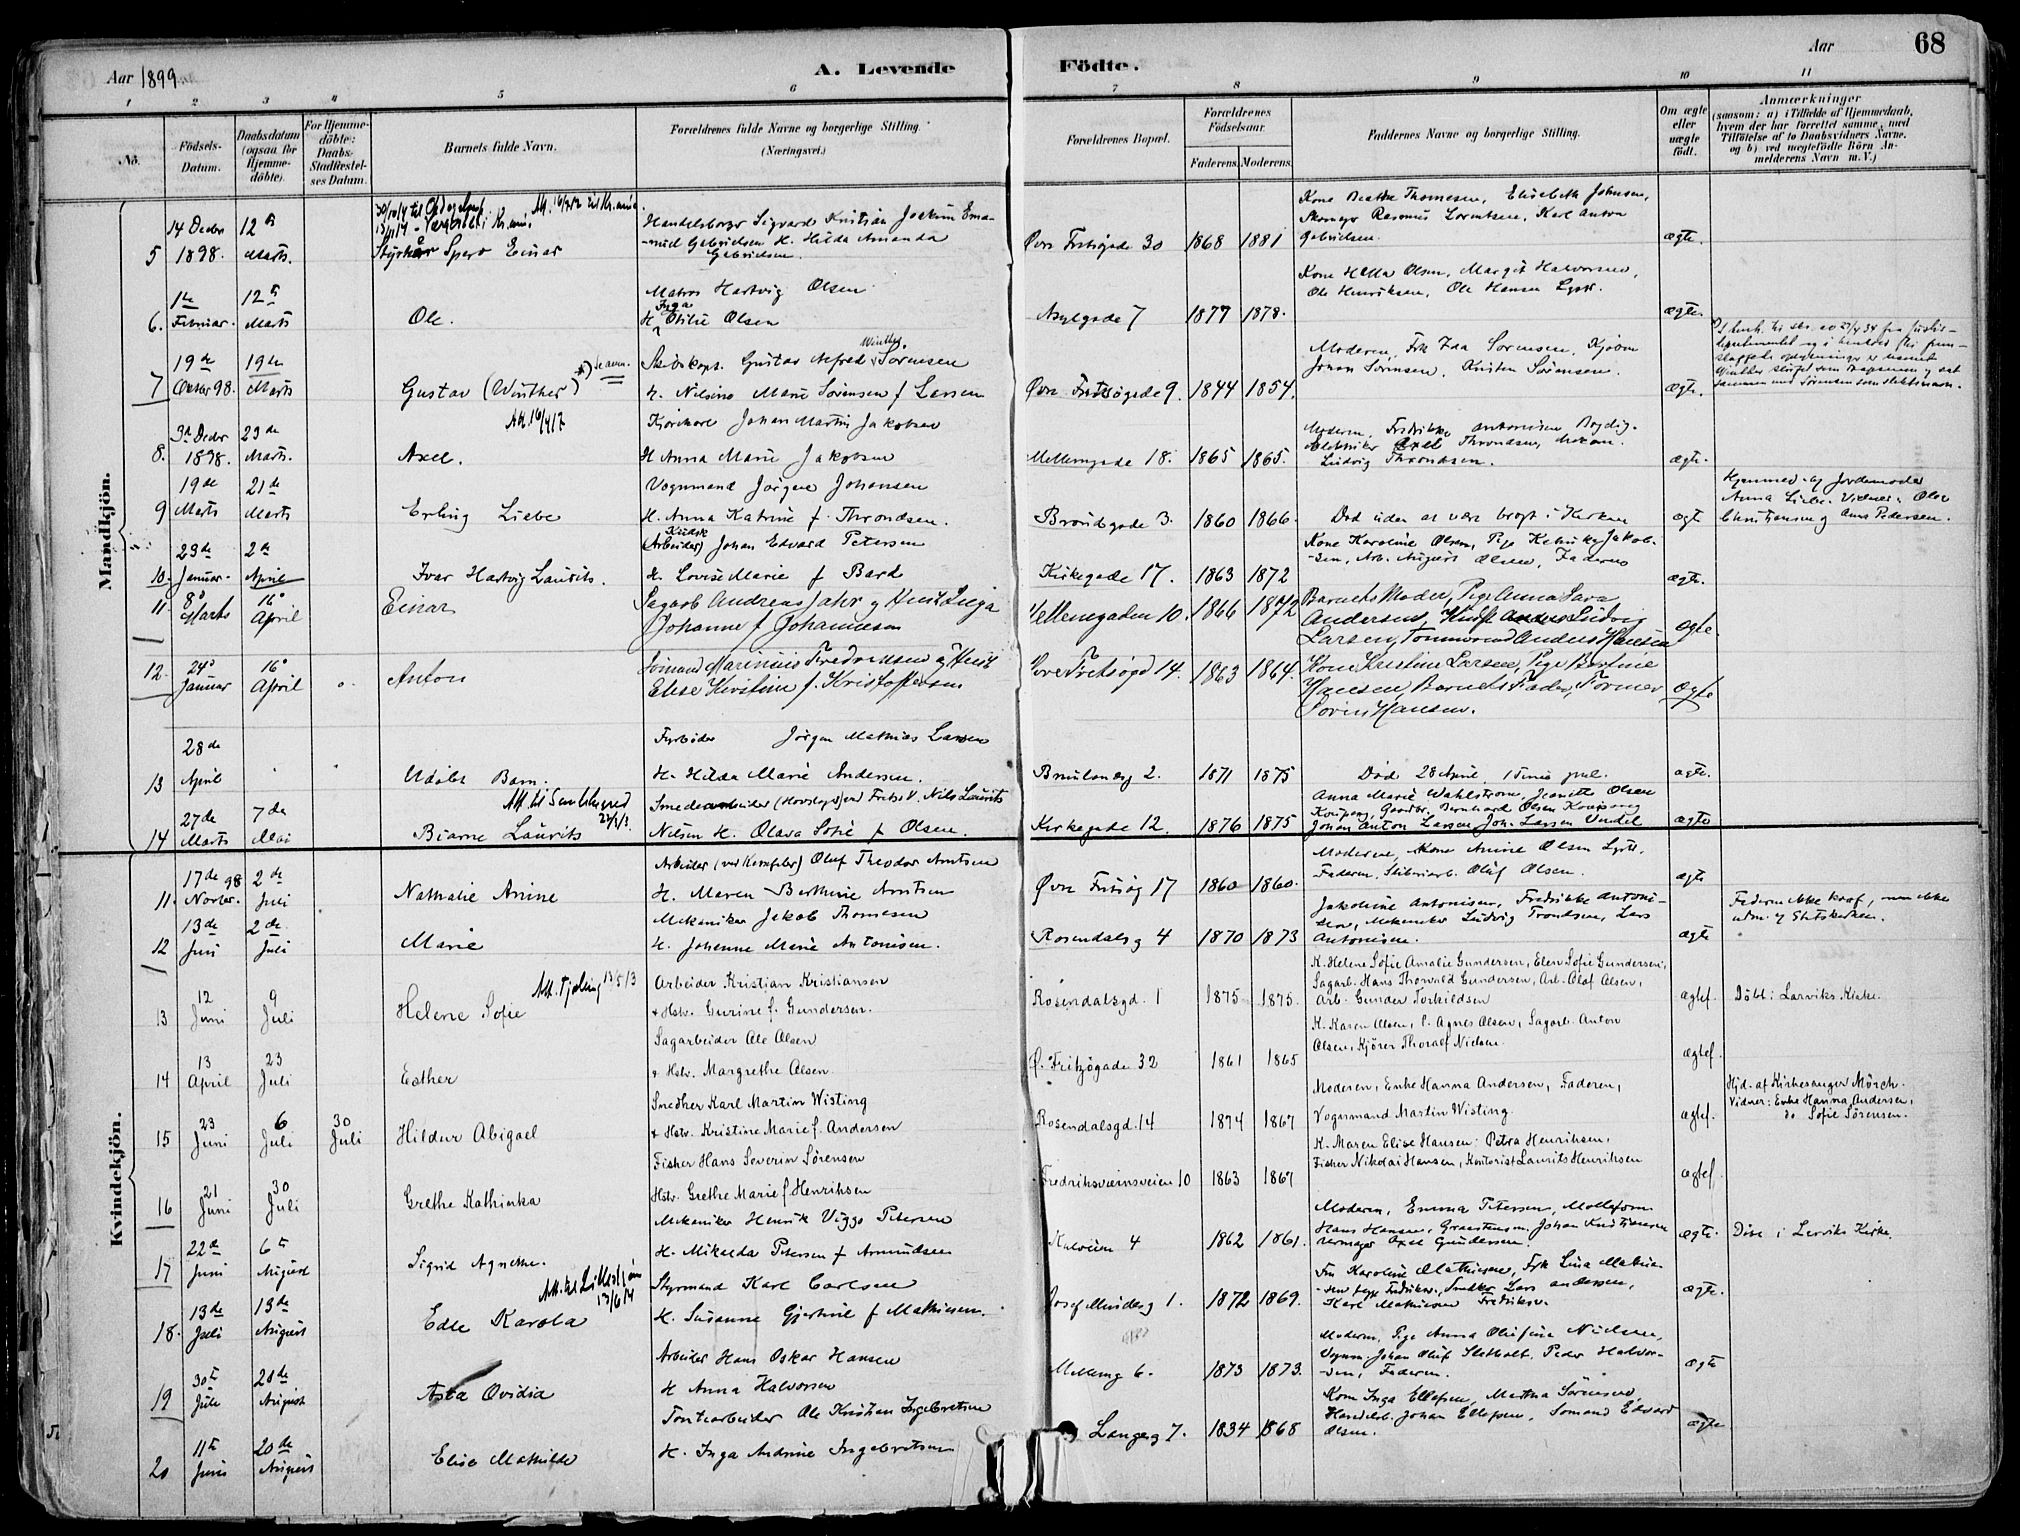 Aar 1899
A. Levende
Födte.
Aar
68
1 2 3 4 5 6 7 8 9 10 11
No.
Födsels-
Datum.
Daabsdatum
(ogsaa for
Hjemme-
döbte).
For Hjemme-
döbte:
Daabs-
Stadfæstel-
ses Datum.
Barnets fulde Navn.
Forældrenes fulde Navne og borgerlige Stilling.
(Næringsvei.)
Forældrenes Bopæl.
Forældrenes
Födselsaar.
Faderens. Moderens.
Faddernes Navne og borgerlige Stilling.
Om ægte
eller
uægte
födt.
Anmærkninger
(saasom: a) i Tilfælde af Hjemmedaab,
hvem der har forrettet samme, med
Tilföielse af to Daabsvidners Navne.
og b) ved uægtefödte Börn An-
melderens Navn m. V.)
Mandkjön.
5
14 Decbr
1898.
12te
Marts.
Einar
Gabrielsen H. Hilda Amanda
Gabrielsen.
Øvre Fritsøgade 30
1868 1881
Kone Beathe Thomesen, Elisabeth Johnsen,
Skomager Rasmus Lorentsen, Karl Anton
Gabrielsen.
ægte.
6.
1ste
Februar.
12te
Marts
Ole.
Matros Hartvig Olsen
H. Inga Otilie Olsen
Asylgade 7
1877 1878.
Kone Hella Olsen, Margit Halvorsen,
Ole Henriksen, Ole Hansen
ægte.
7
19de
Oktbr 98.
19de
Marts
Gustav (Winther) *) se anm.
Skibskapt. Gustav Alfred Winther Sørensen
H. Nilsine Marie Sørensen f Larsen
Øvre Fritsøgade 9.
1844 1854.
Moderen, Frk Ida Sørensen, Kjøbm
Johan Sørensen, Kristen Sørensen.
ægte.
8.
3die Decbr
1898.
23de
Marts.
Axel.
Att. 16/4 17
Kjørekarl Johan Martin Jakobsen
H Anna Marie Jakobsen
Mellemgade 18.
1865 1865.
Moderen, Fredrikke Antonisen
Elektriker Axel Throndsen, Mekan.
Ludvig Throndsen.
ægte.
9
19de
Marts
21de
Marts
Erling Liebe
Vognmand Jørgen Johansen
H. Anna Katrine f. Throndsen.
3.
1860 1866.
Død uden at være bragt i Kirken
ægte
Hjemmed. af Jordemoder
Anna Liebe. Vidner: Olea
Christensen og Ana Pedersen.
10.
23de
Januar.
2den
April
Ivar Hartvig Laurits.
(Arbeider) Kudsk Johan Edvard Petersen
H. Lovise Marie f Bard
Kirkegade 17.
1863 1872
Kone Karoline Olsen, Pige Jakob-
sen, Arb. August Olsen, Faderen
ægte.
11.
8de
Marts
16de
April
Einar
Sagarb Andreas Jahr og Hust Inga
Johanne f Johannesen
Mellemgaden 10.
1866 1872
Barnets Moder, Pige Anna Sara
Andersen, Ludvig
Larsen, Tømmermand Anders Hansen
ægte.
12.
24de
Januar
16de
April
Anton
Sømand Marinius Fredriksen og Hust
Elise Kirstine f. Kristoffersen
Øvre Fritsøgd 14.
1863 1864.
Kone Kristine Larsen, Pige Bertine
Hansen, Barnets Fader, Former
Søren Hansen.
ægte
13
28de
April
Udøbt Barn.
Fyrbøder Jørgen Mathias Larsen
H. Hilda Marie Andersen.
2.
1871 1875
Død 28 April, 1 Time gml.
ægte.
14
27de
Marts
7de
Mai
Bjarne Laurits
Smedearbeider (Hovslager) ved Fritzø V. Nils Laurits
Nilsen H. Olava Sofie f Olsen.
Kirkegade 12.
1876 1875
Anna Marie Wahlstrøm, Jeanette Olsen
Bernhard Olsen
Johan Anton Larsen
ægte
Kvindekjön.
11.
17de 98
Novbr.
2den
Juli
Nathalie Anine
Arbeider Oluf Theodor Arntsen
H. Maren Berthine Arntsen
Øvre Fritsøg 17
1860 1860.
Moderen, Kone Anine Olsen
Faderen, Oluf Olsen.
ægte
12
13de
Juni
2den
Juli
Marie
Mekaniker Jakob Thomesen
H. Johanne Marie Antonisen.
Rosendalsg 4
1870 1873
Jakobine Antonisen, Fredrikke Antoni-
sen, Mekaniker Ludvig Trondsen, Lars
Antonisen.
ægte
Faderen ikke konf, men ikke
udm. af Statskirken.
13
12
Juni
9
Juli
Helene Sofie
Att. Tjølling 13/5 13
Arbeider Kristian Kristiansen
& Hstr. Gurine f. Gundersen.
Rosendalsgd. 1
1875 1875.
K. Helene Sofie Amalie Gundersen, Elen Sofie Gundersen,
Sagarb. Hans Thorvald Gundersen, Arb. Olaf Olsen,
Arb. Gunder Torkildsen
ægtef.
Döbt i Larviks Kirke.
14
13
April
23
Juli
Esther
Sagarbeider Ole Olsen
& Hstr. Margrethe Olsen
Ø. Fritzøgade 32
1861 1865
K. Karen Olsen, P. Agnes Olsen, Sagarb. Anton
Olsen, Kjører Thoralf Nielsen
ægtef.
15
23
Juni
6
Juli
30
Juli
Hildur Abigael
Snedker Karl Martin Wisting
& Hstr. Kristine Marie f. Andersen
Rosendalsgd. 14
1874 1867
Moderen, Enke Hanna Andersen, Faderen,
Vognmand Martin Wisting.
ægtef.
Hjd. af Kirkesanger Mörch.
Vidner: Enke Hanna Andersen,
do Sofie Sørensen.
16
21
Juni
30
Juli
Grethe Kathinka
Fisker Hans Severin Sørensen
Hstr. Grethe Marie f Henriksen
Fredriksværnsveien 10
1863 1867
K. Maren Elise Hansen. Petra Henriksen,
Fisker Nikolai Hansen, Kontorist Laurits Henriksen
ægtef.
17
22de
Juni
6te
August
Sigrid Agnethe.
Mekaniker Henrik Viggo Petersen
H. Mikalda Petersen f Amundsen
4
1862 1861.
Moderen, Emma Petersen,
Hans Hansen, Johan Kristiansen
Axel Gundersen.
ægte.
Døbt i Larviks Kirke.
18.
13de
Juli
13de
August
Edle Karola
13/6 14
Styrmand Karl Carlsen
H. Susanne Gjertine f Mathisen.
1.
1872 1869.
Fru Karoline Mathisen, Frk Lina Mathi-
Lars Andersen,
Karl Mathisen
ægte.
19
30te
Juli
20de
August
Asta Ovidia
Arbeider Hans Oskar Hansen
H Anna Halvorsen
Mellemg 6.
1873 1873.
Moderen, Pige Anna Olufine Nielsen,
Vognm. Johan Oluf Sletholt, Peder Halvor-
sen, Faderen.
ægte
20
11te
Juni
20de
August
Elise Mathilde
Tomtearbeider Ole Kristian Ingebretsen
H. Inga Andrine Ingebretsen
Langesg 7.
1834 1868
Kone Inga Ellefsen, Martha Sørensen,
Handelsb. Johan Ellefsen, Sømand Edvard
Olsen.
ægte